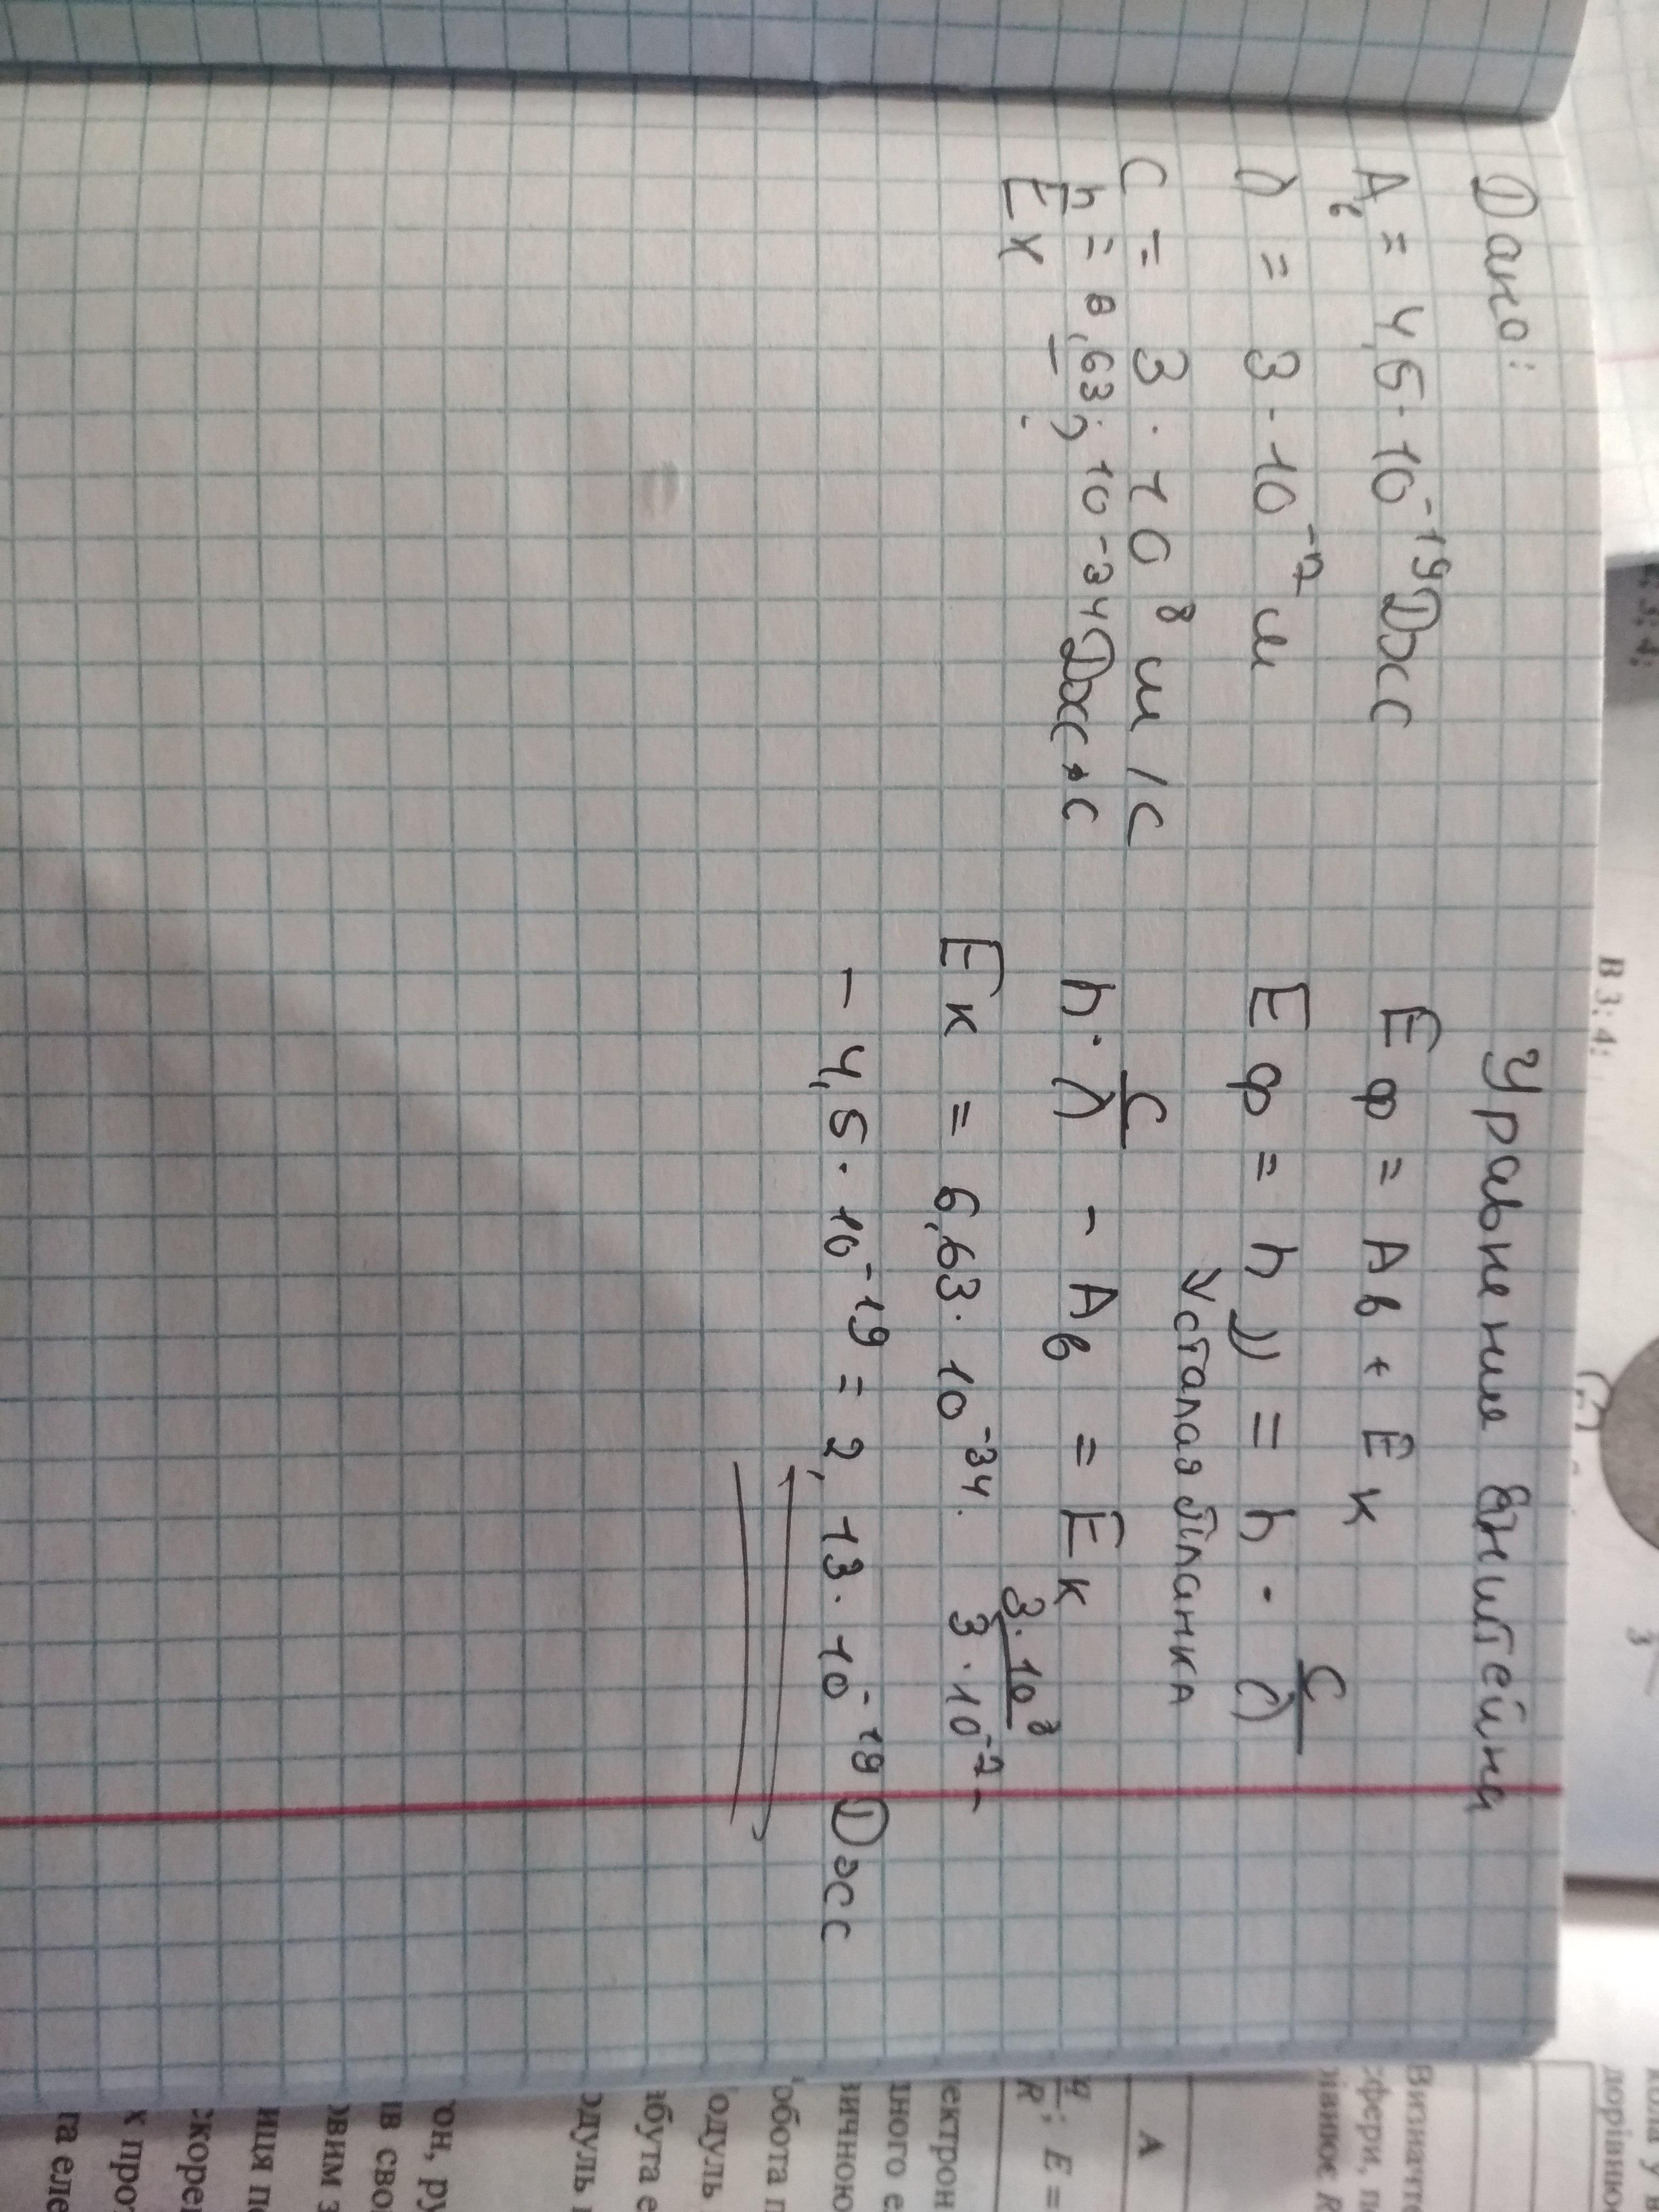 Дано:
Aв = 4,5 · 10⁻¹⁹ Дж
λ = 3 · 10⁻⁷ м
c = 3 · 10⁸ м/с
h = 6,63 · 10⁻³⁴ Дж · с
Eк
Уравнение Энштейна
Eф = Aв + Eк
Eф = hν = h · c/λ
сталая Планка
h · c/λ - Aв = Eк
Eк = 6,63 · 10⁻³⁴ · 3 · 10⁸ / 3 · 10⁻⁷ -
- 4,5 · 10⁻¹⁹ = 2,13 · 10⁻¹⁹ Дж
В 3; 4;
3; 4;
Визначте
сфери,
рівнює R
А
q/R; E =
ектрон
ного е
ичною
обота п
одуль
абута е
одуль
он, ру
в сво
овим з
иця п
скоре
к про
та еле